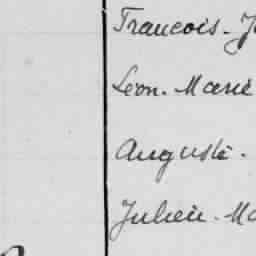 Francois - J
Léon - Marie
Auguste -
Julien - Ma